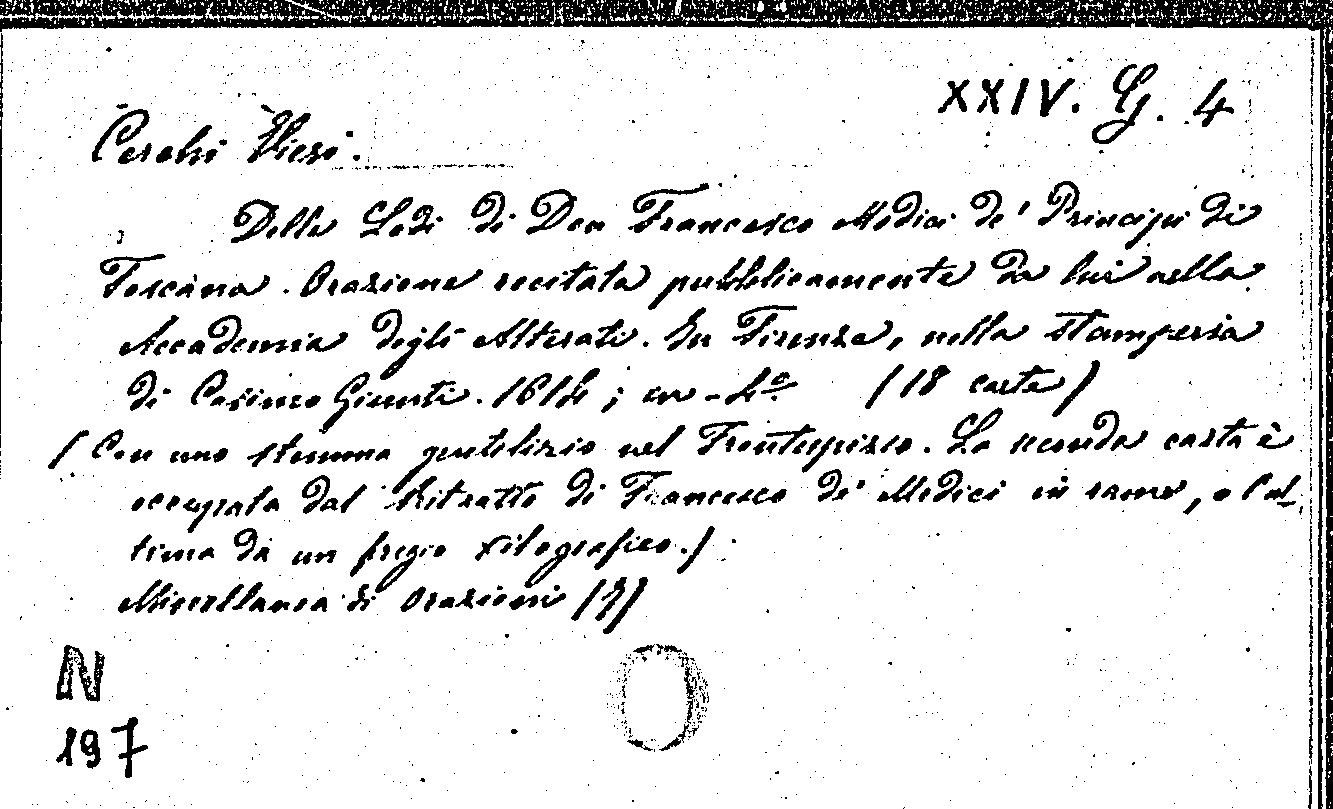 XXIV. G. 4
Cerchi Vieri.
Delle Lodi di Don Francesco Medici de' Principi di
Toscana. Orazione recitata pubblicamente da lui nella
Accademia degli Alterati. In Firenze, nella stamperia
di Cosimo Giunti. 1614; in-4º. (18 carte)
(Con uno stemma gentilizio nel Frontespizio. La seconda carta è
occupata dal Ritratto di Francesco de' Medici in rame, e l'ul-
tima da un fregio xilografico.)
Miscellanea di Orazioni
N
197